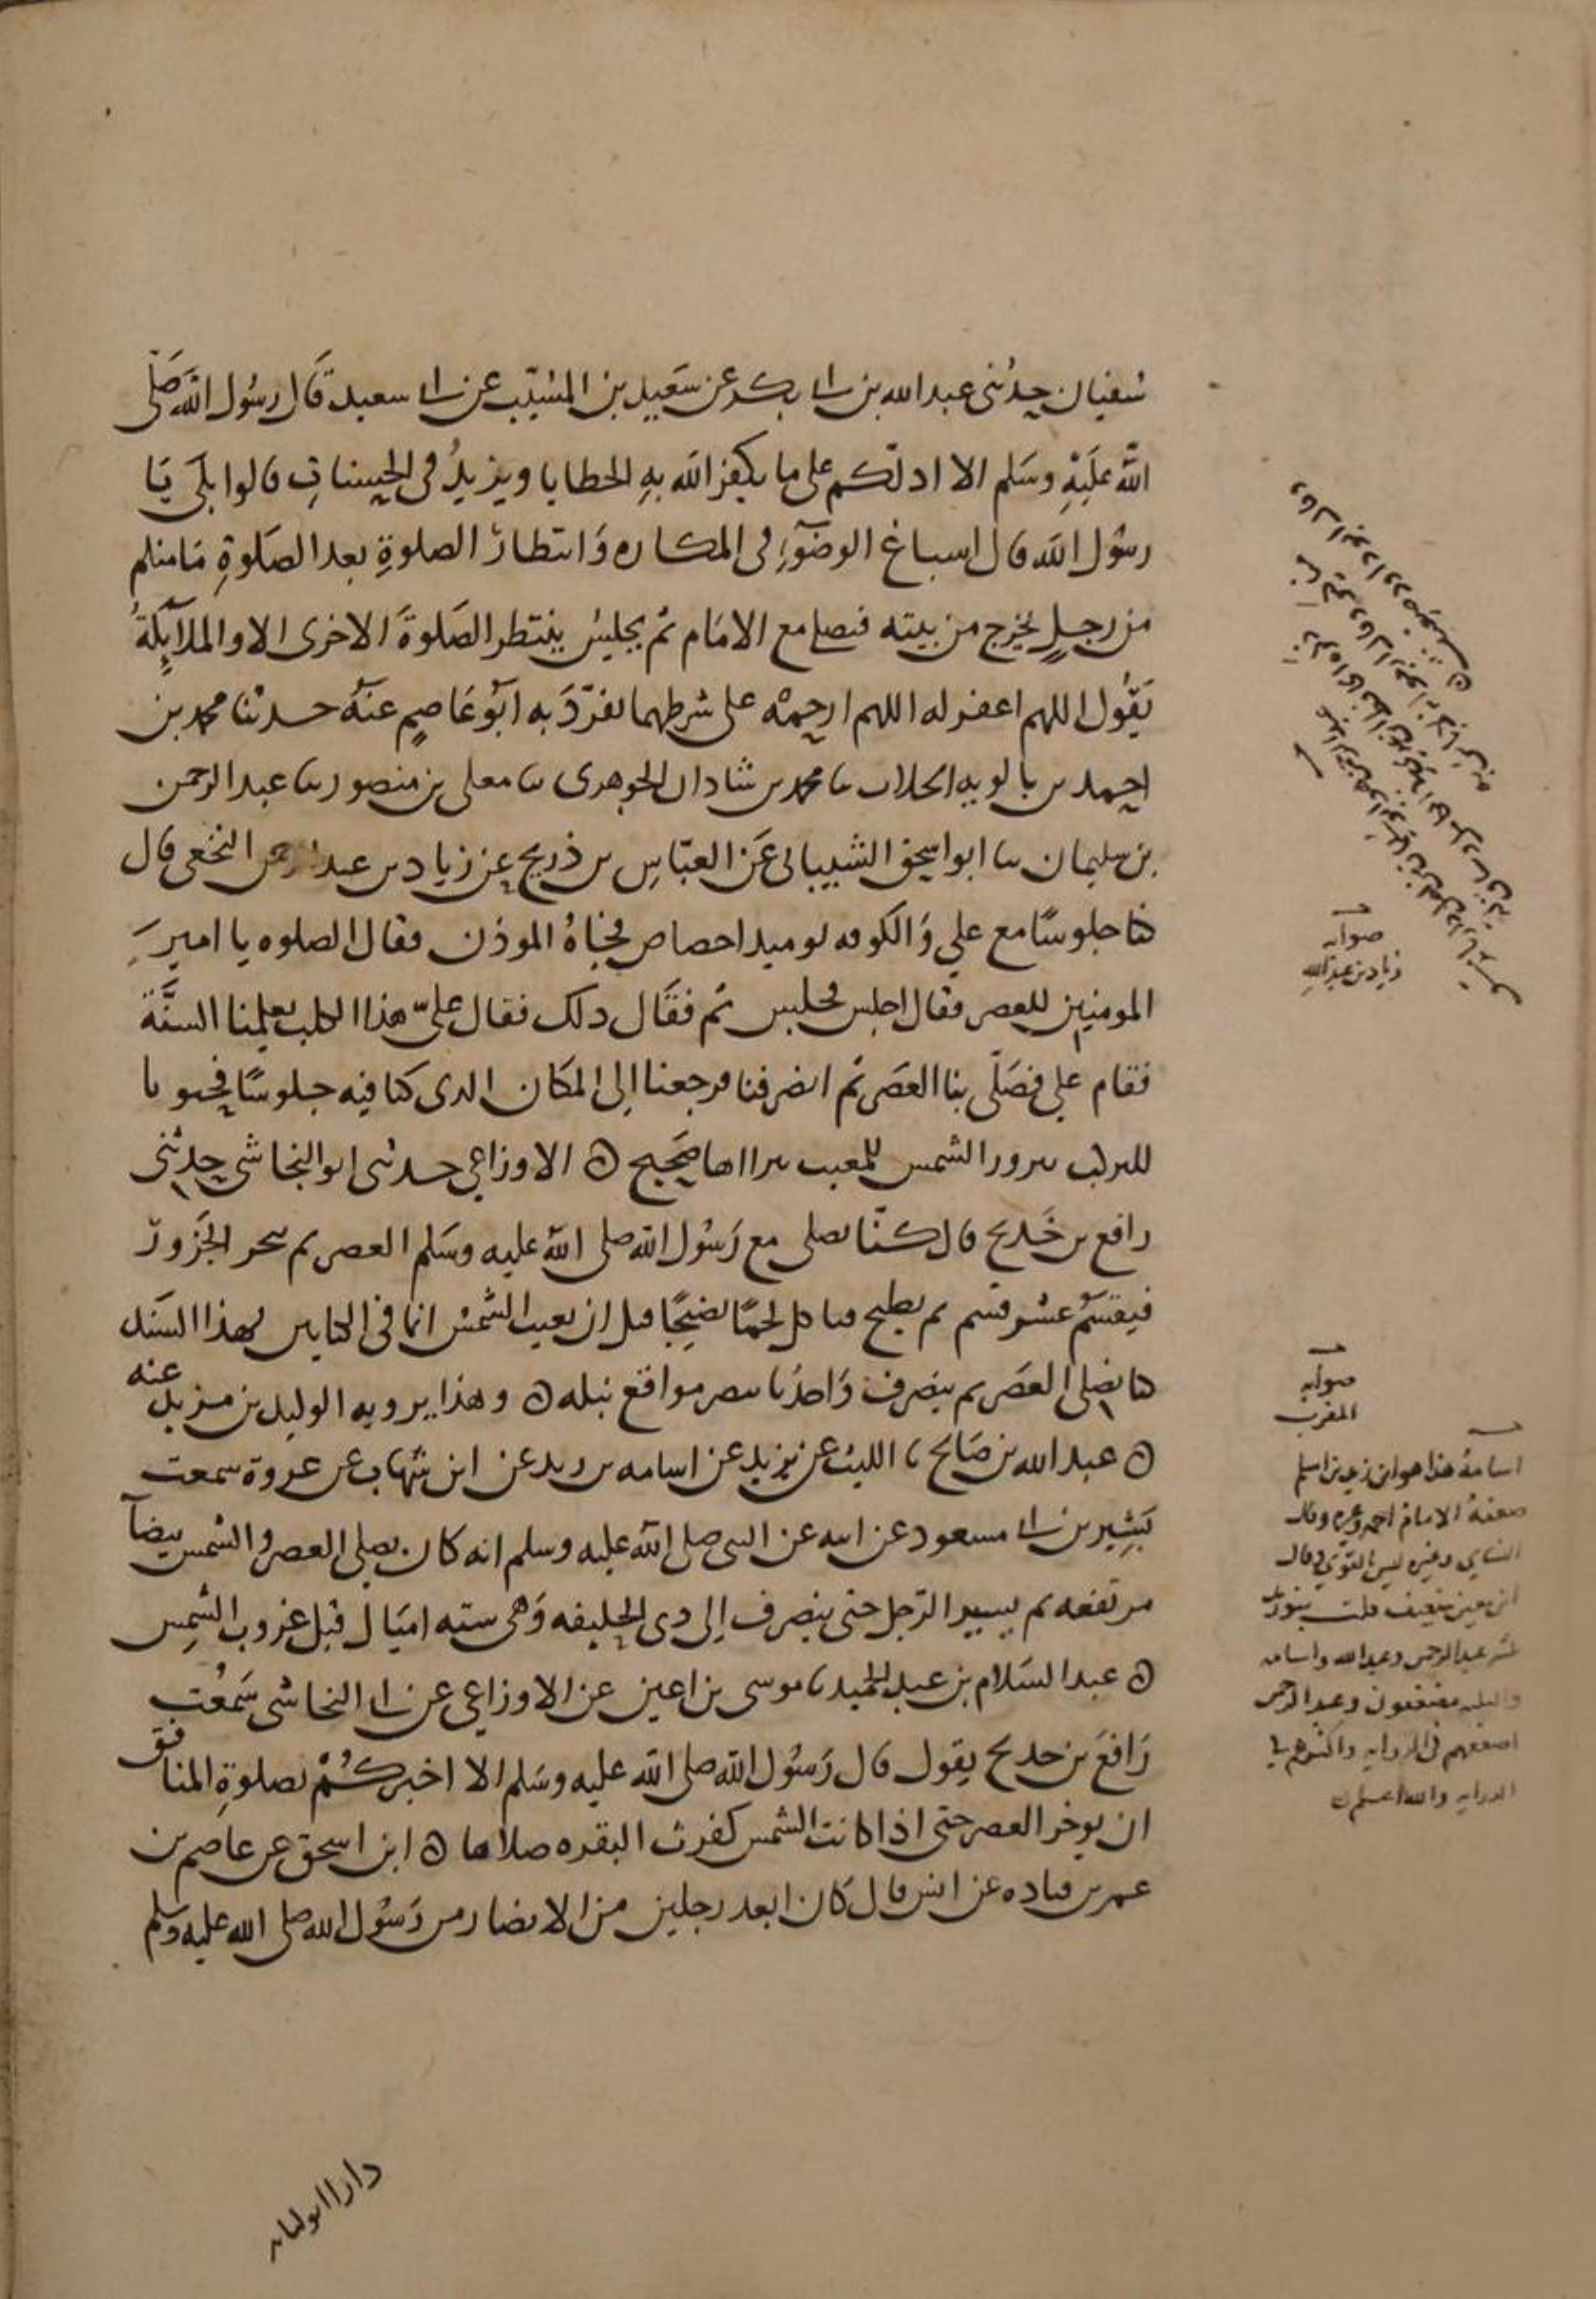 سفيان حدثنى عبد الله بن ابى بكر عن سَعِيد بن المسَيّب عن ابى سعيد قَال رسُول الله صَلى
اللّه عَليَهْ وسَلم الا ادلكم على ما يكفر الله بهِ الخطايا ويزيدُ فى الحسنات قالوا بلَى يَا
رسُول الله قال اسباغ الوضوءِ فى المكاره وَانتظارُ الصلوةِ بعد الصَلوةِ مَا منكم
من رجلٍ يخرج من بيته فيصلى مع الامَام ثم يجليسُ ينتظر الصَلوةَ الاخرى الا والملآيكةُ
يَقُول اللهم اغفر له اللهم ارحمهْ على شرطهما تفرّدَ به ابوُ عَاصِم عنهُ حدثنا محمد بن
احمد بن بالويه الجلاب ثنا محمد بن شاذان الجوهرى ثنا معلى بن منصور ثنا عبد الرحمن
بن سليمان ثنا ابو اسحق الشيبانى عَن العبّاسِ بن ذريح عن زياد بن عبد الرحمن النخعى قال
كنا جلوسًا مع علي وَالكوفه يوميذ اخصاص فجاهُ الموذن فقال الصلوه يا امير
المومنين للعصر فقال اجلس فجلس ثم فقَال ذلك فقال علىّ هذا الكلب يعلمنا السنَّة
فقام علي فصَلّى بنا العصَر ثم انصرفنا فرجعنا الى المكان الذى كنا فيه جلوسًا فجثونا
للركب نزور الشمس للمغيب نتراآها صَحيح ه الاوزاعي حدثنى ابو النجاشى حدثنى
رافع بن خَديج قال كنّا نصلى مع رَسُول الله صلى اللّه عليه وسَلم العصر ثم ننحر الجَزورَ
فيقسَّم عشر قسم ثم يطبخ فناكل لحمًا نضيجًا قبل ان تغيب الشمسْ انما فى الكتابين بهذا السَند
كنا نصلى العصَر ثم ينصرف وَاحدُنا يبصر مواقع نبله ه وهذا يرويه الوليد بن مزيد عنه
ه عبد الله بن صَالح ثنا الليث عن يزيد عن اسامه بن زيد عن ابن شهاب عن عروة سمعت
بَشِير بن ابى مسعود عن ابيه عن النبى صلى اللّه عليه وسلم انه كان يصلى العصر والشمس بيضآ
مرتفعه ثم يسير الرّجل حتى ينصرف الى ذى الحليفه وَهى سته اميَال قبل غروب الشمِس
ه عبد السَلام بن عبد الحميد ثنا موسى بن اعين عن الاوزاعى عن ابى النجاشى سَمعُت
رَافعَ بن خديج يقول قال رَسُول اللّه صلى اللّه عليه وسَلم الا اخبركُمْ بصلوةِ المنافق
ان يوخر العصر حتى اذا كانت الشمس كثرب البقره صلاها ه ابن اسحق عن عاصم بن
عمر بن قتاده عن انس قال كَان ابعد رجلين من الانصار من رَسُول الله صلى الله عليه وسلم
صوابه
زياد بن عبد اللهِ
صوابه
المغرب
اسامة هذا هو ابن زيد بن اسلم
ضعفهُ الامام احمد وغيره وقال
النساي وغيره ليس بالقوي وقال
ابن معين ضعيف قلت بنو زيد
عبد الرحمن وعبد الله واسامه
مضعفون وعبد الرحمن
اضعفهم فى الروايه واكثرهم فى
الدرايه والله اعلم
دارا ابو لبابه